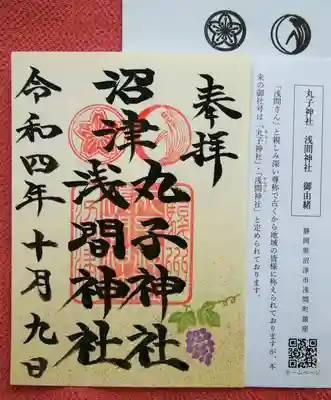 奉拝
沼津
丸子神社
浅間神社
令和四年十月九日
丸子神社 浅間神社 御由緒
静岡県沼津市浅間町鎮座
「浅間さん」と親しみ深い尊称で古くから地域の皆様に称えられておりますが、本
来の御社号は「丸子神社」「浅間神社」と定められております。
ホームページ